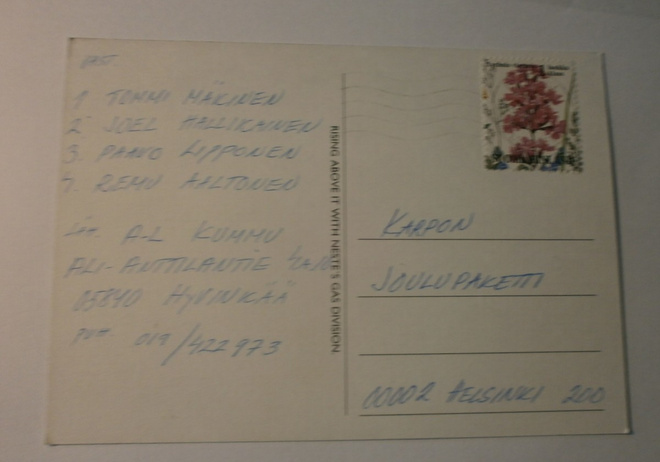 VAST.
1 TOMMI MÄKINEN
2 JOEL HALLIKAINEN
3. PAAVO LIPPONEN
4. REMU AALTONEN
Läh. A-L KUMMU
ALI-ANTTILANTIE
05840 HYVINKÄÄ
PUH 019/422973
RISING ABOVE IT WITH NESTE'S GAS DIVISION
KARPON
JOULUPAKETTI
00002 HELSINKI 200